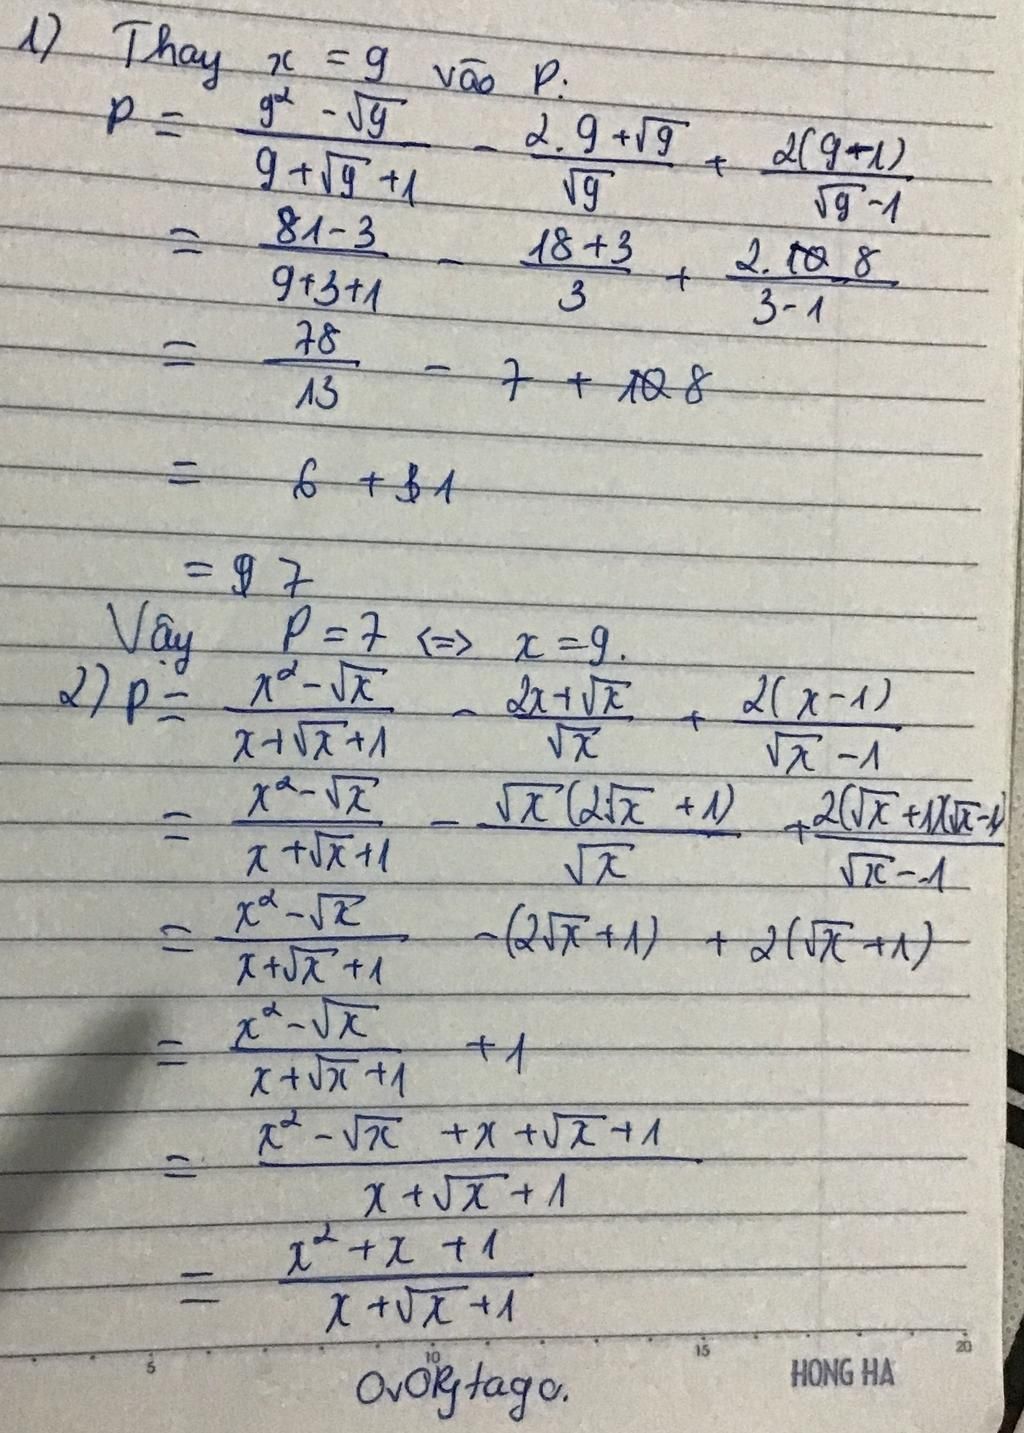 1) Thay x = 9 vào P:
P = (9² - √9)/(9 + √9 + 1) - (2.9 + √9)/√9 + 2(9-1)/(√9 - 1)
= (81 - 3)/(9+3+1) - (18+3)/3 + (2. 8)/(3-1)
= 78/13 - 7 + 8
= 6 + 1
= 7
Vậy P = 7 <=> x = 9.
2) P = (x² - √x)/(x+√x+1) - (2x+√x)/√x + 2(x-1)/(√x - 1)
= (x² - √x)/(x+√x+1) - √x(2√x + 1)/√x + 2(√x + 1)(√x - 1)/(√x - 1)
= (x² - √x)/(x+√x+1) - (2√x + 1) + 2(√x + 1)
= (x² - √x)/(x+√x+1) + 1
= (x² - √x + x + √x + 1)/(x + √x + 1)
= (x² + x + 1)/(x + √x + 1)
5 10 15 20
HONG HA